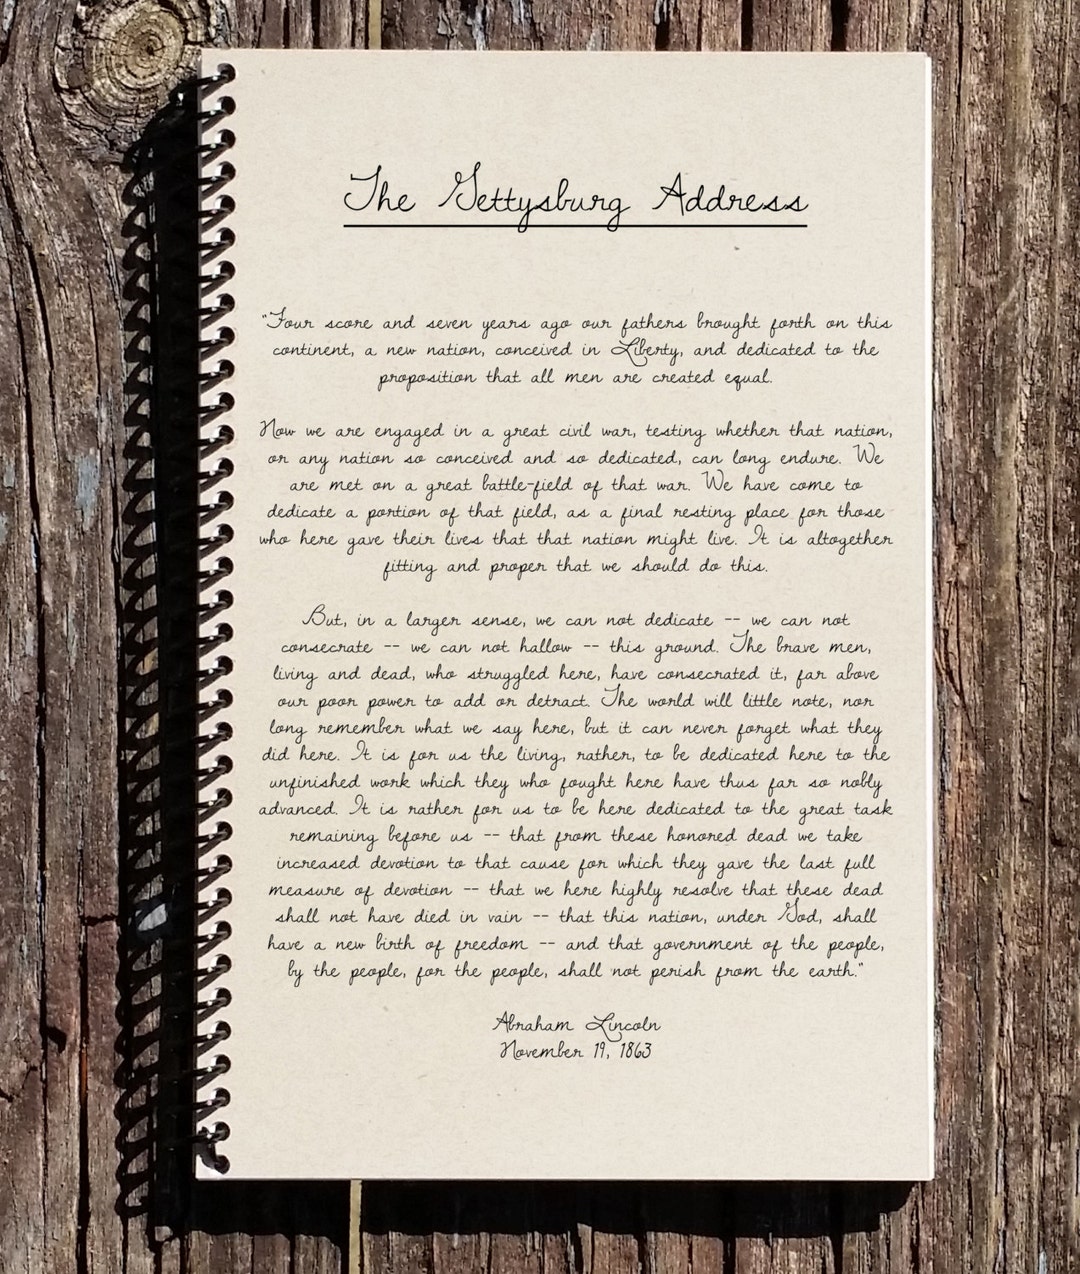 The Gettysburg Address
"Four score and seven years ago our fathers brought forth on this
continent, a new nation, conceived in Liberty, and dedicated to the
proposition that all men are created equal.
Now we are engaged in a great civil war, testing whether that nation,
or any nation so conceived and so dedicated, can long endure. We
are met on a great battle-field of that war. We have come to
dedicate a portion of that field, as a final resting place for those
who here gave their lives that that nation might live. It is altogether
fitting and proper that we should do this.
But, in a larger sense, we can not dedicate -- we can not
consecrate -- we can not hallow -- this ground. The brave men,
living and dead, who struggled here, have consecrated it, far above
our poor power to add or detract. The world will little note, nor
long remember what we say here, but it can never forget what they
did here. It is for us the living, rather, to be dedicated here to the
unfinished work which they who fought here have thus far so nobly
advanced. It is rather for us to be here dedicated to the great task
remaining before us -- that from these honored dead we take
increased devotion to that cause for which they gave the last full
measure of devotion -- that we here highly resolve that these dead
shall not have died in vain -- that this nation, under God, shall
have a new birth of freedom -- and that government of the people,
by the people, for the people, shall not perish from the earth."
Abraham Lincoln
November 19, 1863